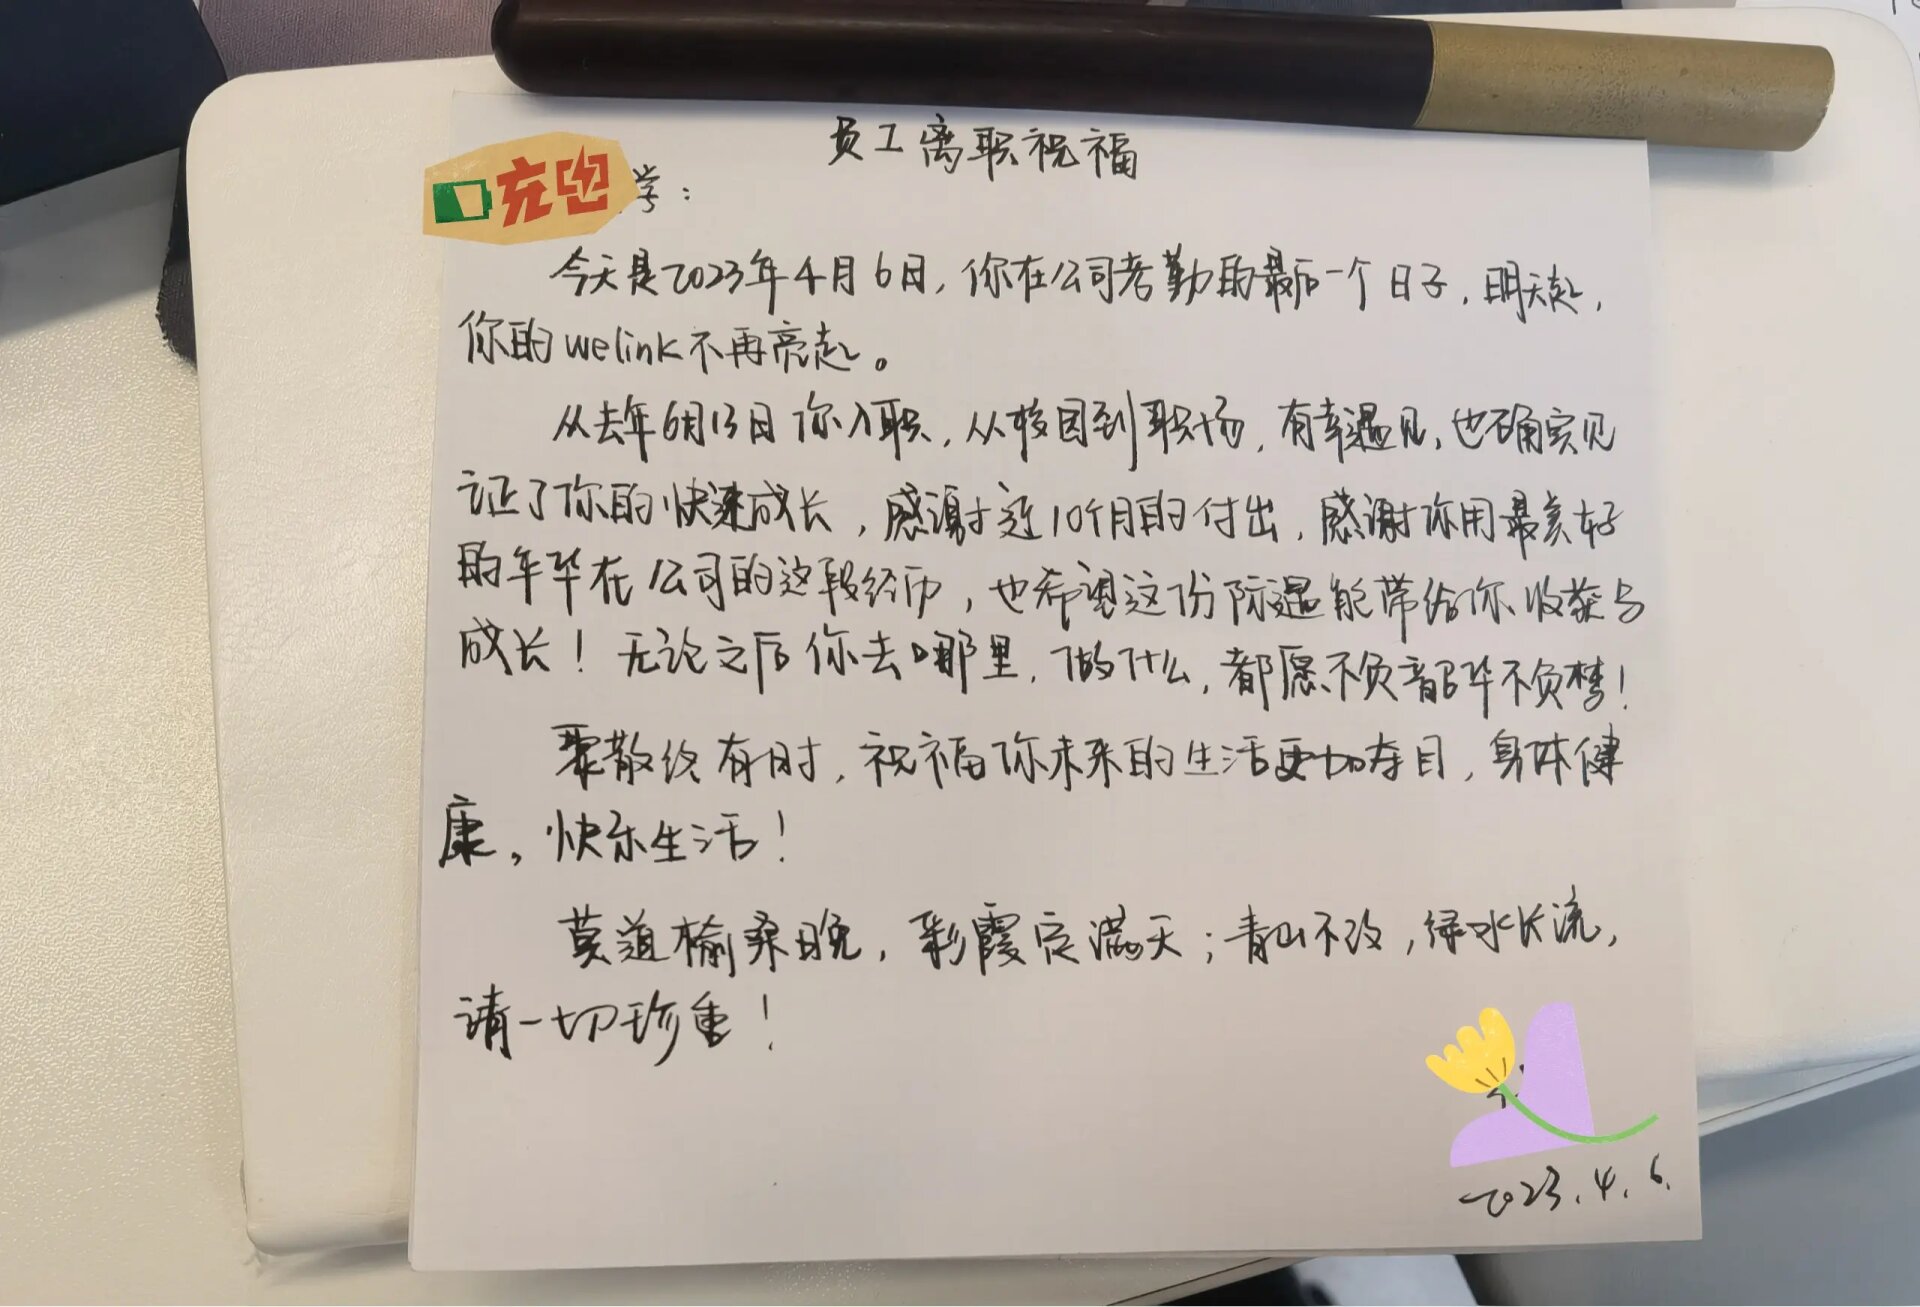 员工离职祝福
充电 学：
今天是2023年4月6日，你在公司考勤的最后一个日子，明天起，
你的welink不再亮起。
从去年6月13日你入职，从校园到职场，有幸遇见，也确实见
证了你的快速成长，感谢这10个月的付出，感谢你用最美好
的年华在公司的这段经历，也希望这份际遇能带给你收获与
成长！无论之后你去哪里，做什么，都愿不负韶华不负梦！
聚散终有时，祝福你未来的生活更加夺目，身体健
康，快乐生活！
莫道榆桑晚，彩霞定满天；青山不改，绿水长流，
请一切珍重！
2023.4.6.